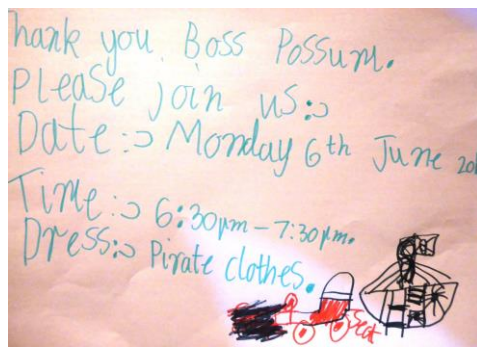 Thank you Boss Possum.
Please join us:
Date: Monday 6th June
Time: 6:30pm – 7:30pm.
Dress: Pirate clothes.
seat